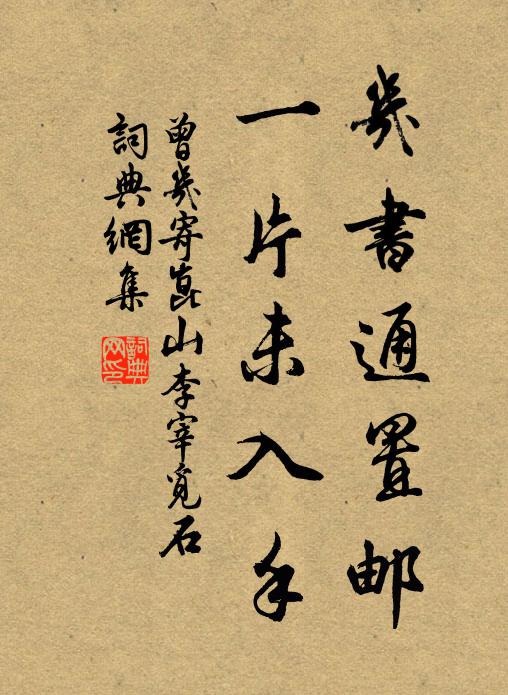 幾書通置邮
一片未入手
曾幾寄崑山李宰覓石
詞典網集
詞典
网印